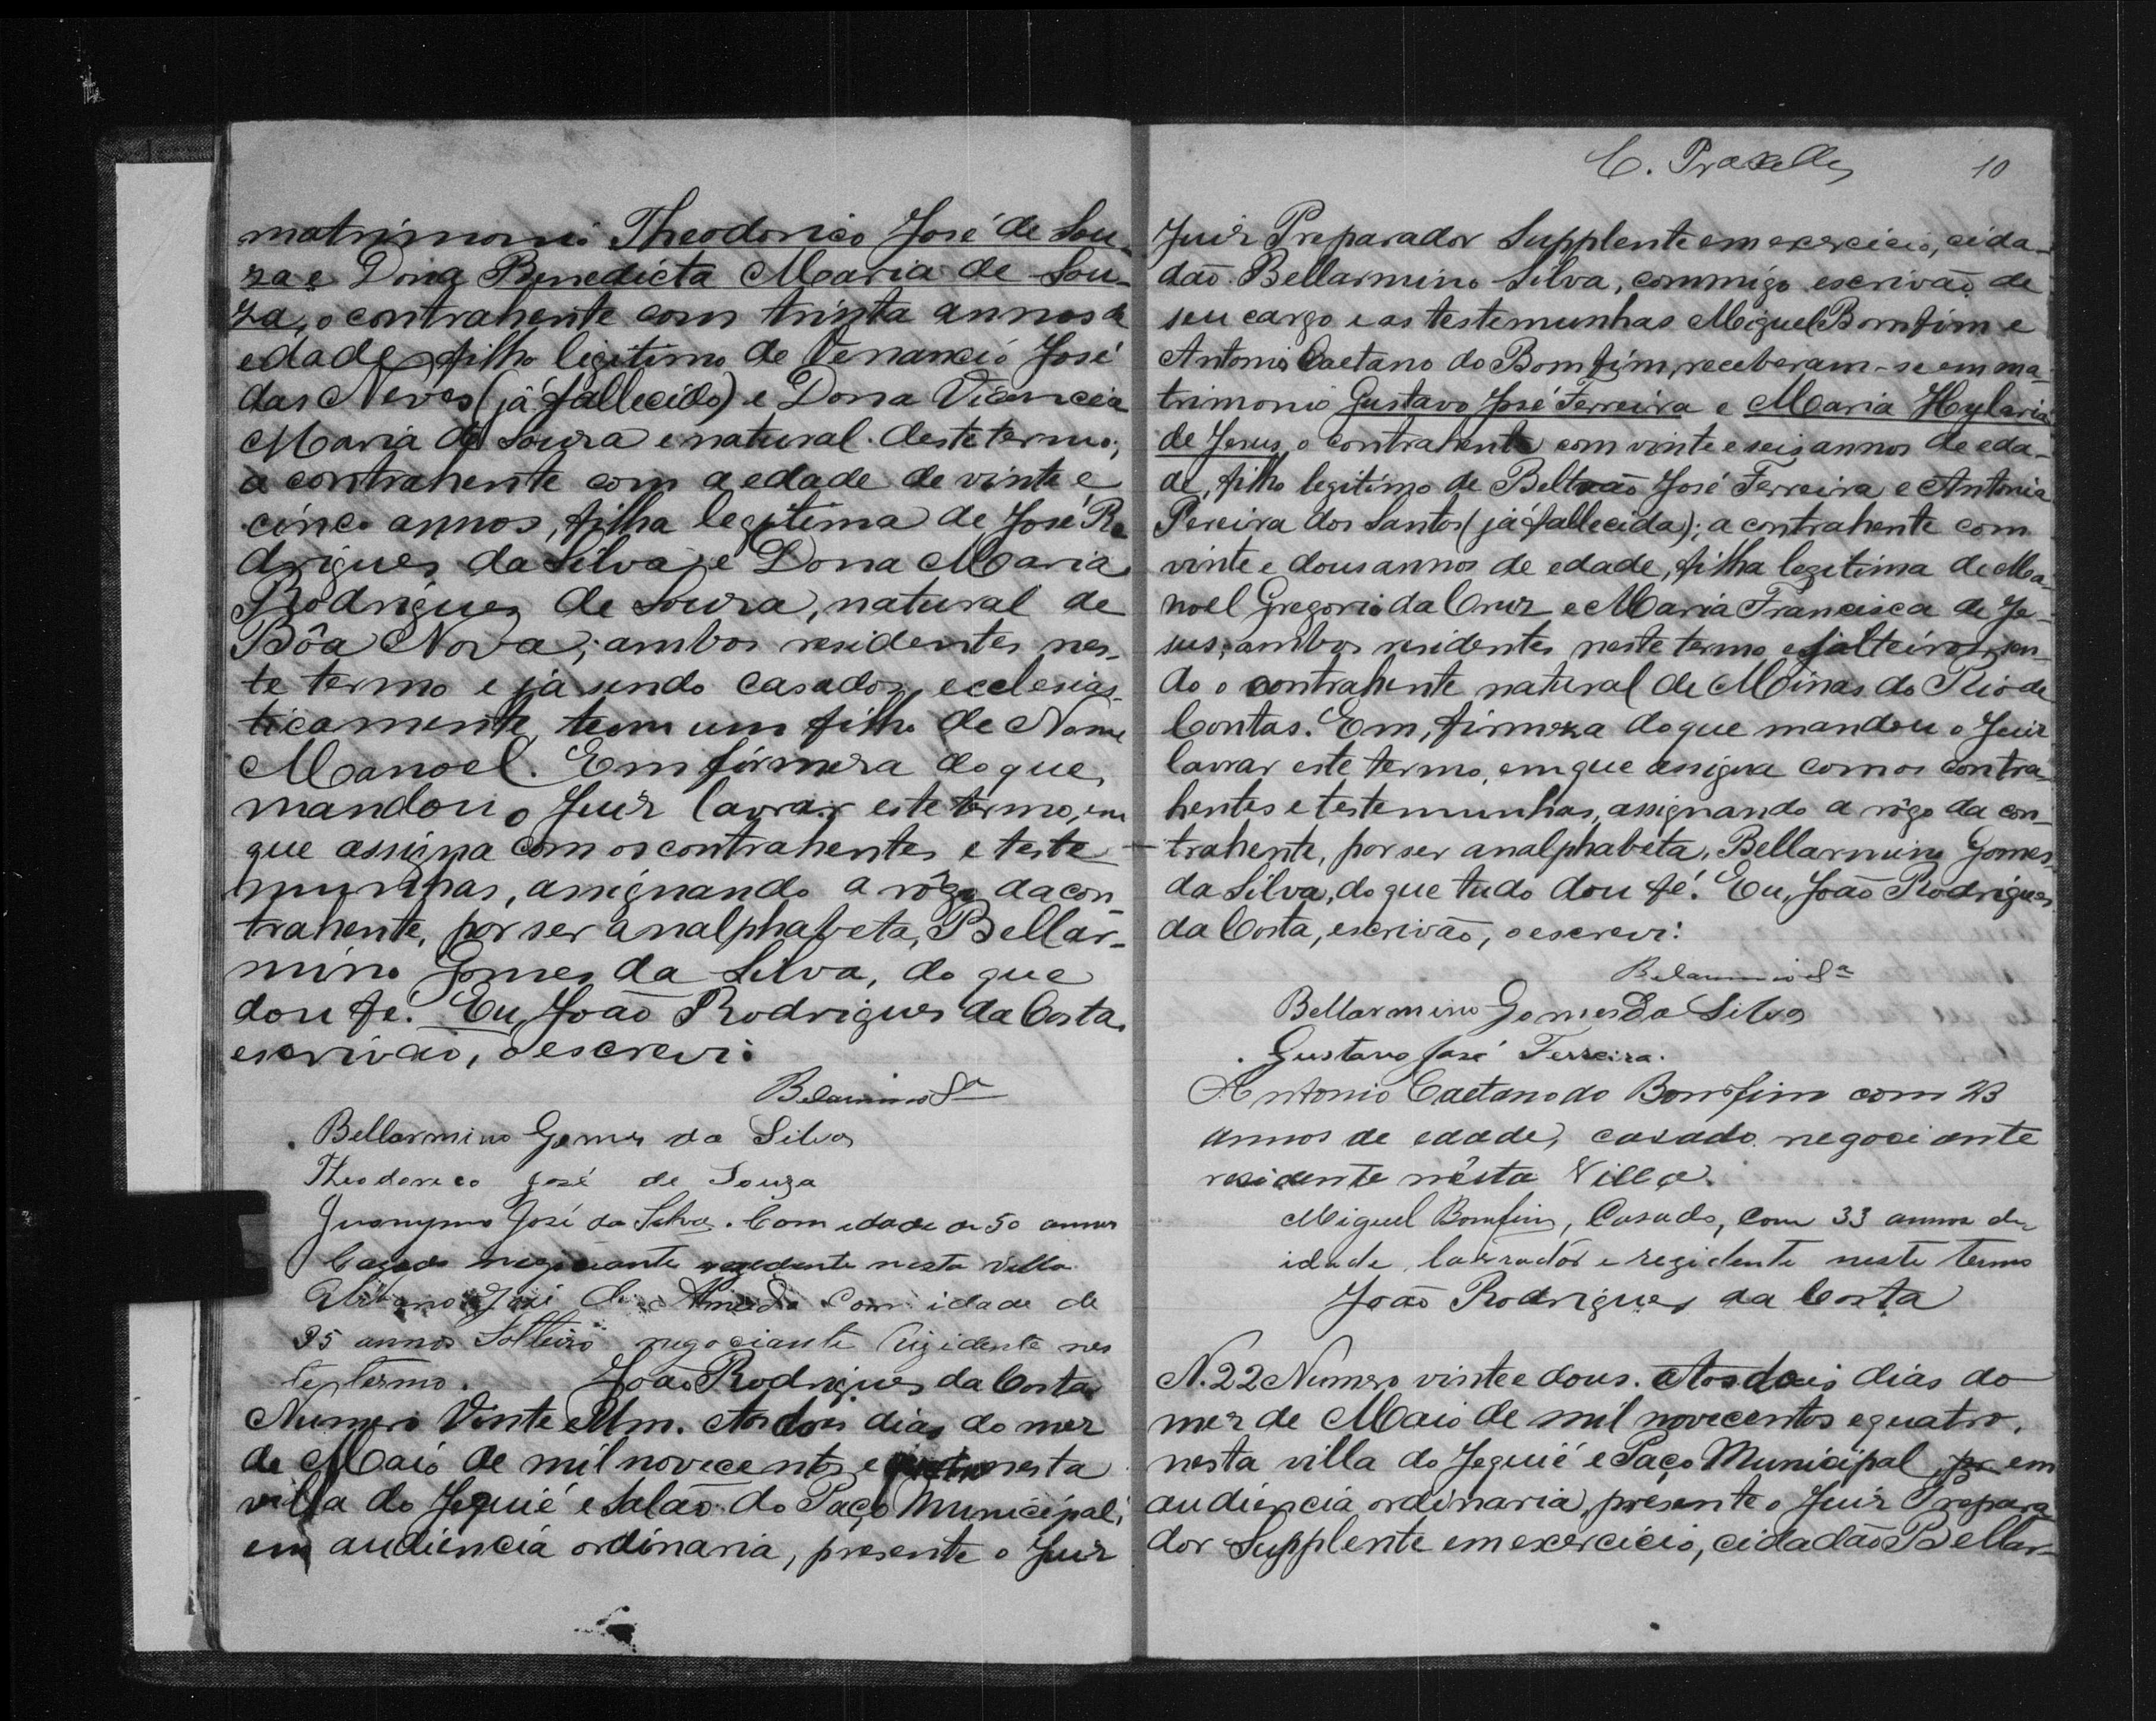 matrimonio Theodorico José de Sou-
za e Dona Benedicta Maria de Sou-
za, o contrahente com trinta annos de
edade, filho legitimo de Venancio José
das Neves (já fallecido) e Dona Vicencia
Maria de Souza e natural deste termo;
a contrahente com a edade de vinte e
cinco annos, filha legitima de José Ro
drigues da Silva e Dona Maria
Rodrigues de Souza, natural de
Bôa Nova; ambos residentes nes-
te termo e já sendo casados ecclesias-
ticamente, tem um filho de Nome
Manoel. Em firmeza do que,
mandou o Juiz lavrar este termo, em
que assigna com os contrahentes e teste-
munhas, assignando a rôgo da con-
trahente, por ser analphabeta, Bellar-
mino Gomes da Silva, do que
dou fé. Eu, João Rodrigues da Costa,
escrivão, o escrevi:
Belarmino Sa
Bellarmino Gomes da Silva
Theodorico José de Souza
José da Silva. Com idade de 50 annos
Cazado negociante rezedente nesta villa
José de Almeida Com idade de
35 annos Solteiro negociante Rizidente nes
te termo. João Rodrigues da Costa
Numero Vinte e Um. Aos dois dias do mez
de Maio de mil novecentos e quatro nesta
villa do Jequié e Salão do Paço Municipal,
em audiencia ordinaria, presente o Juiz
C. Praxelles 10
Juiz Preparador Supplente em exercicio, cida-
dão Bellarmino Silva, commigo escrivão de
seu cargo e as testemunhas Miguel Bomfim e
Antonio Caetano do Bomfim, receberam-se em ma-
trimonio Gustavo José Ferreira e Maria Hylaria
de Jesus, o contrahente com vinte e seis annos de eda-
de, filho legitimo de Beltrão José Ferreira e Antonia
Pereira dos Santos (já fallecida); a contrahente com
vinte e dous annos de edade, filha legitima de Ma-
noel Gregorio da Cruz e Maria Francisca de Je-
sus; ambos residentes neste termo e solteiros, sen-
do o contrahente natural de Minas do Rio de
Contas. Em firmeza do que mandou o Juiz
lavrar este termo, em que assigna com os contra-
hentes e testemunhas, assignando a rôgo da con-
trahente, por ser analphabeta, Bellarmino Gomes
da Silva, do que tudo dou fé. Eu, João Rodrigues
da Costa, escrivão, o escrevi:
Belarmino Sa
Bellarmino Gomes da Silva
Gustavo José Ferreira.
Antonio Caetano do Bomfim com 23
annos de edade, casado negociante
residente nésta Villa.
Miguel Bomfim, Casado, Com 33 annos de
idade, lavrador e rezidente neste termo
João Rodrigues da Costa
N. 22 Numero vinte e dous. Aos dois dias do
mez de Maio de mil novecentos e quatro,
nesta villa do Jequié e Paço Municipal, em
audiencia ordinaria, presente o Juiz Prepara
dor Supplente em exercicio, cidadão Bellar-